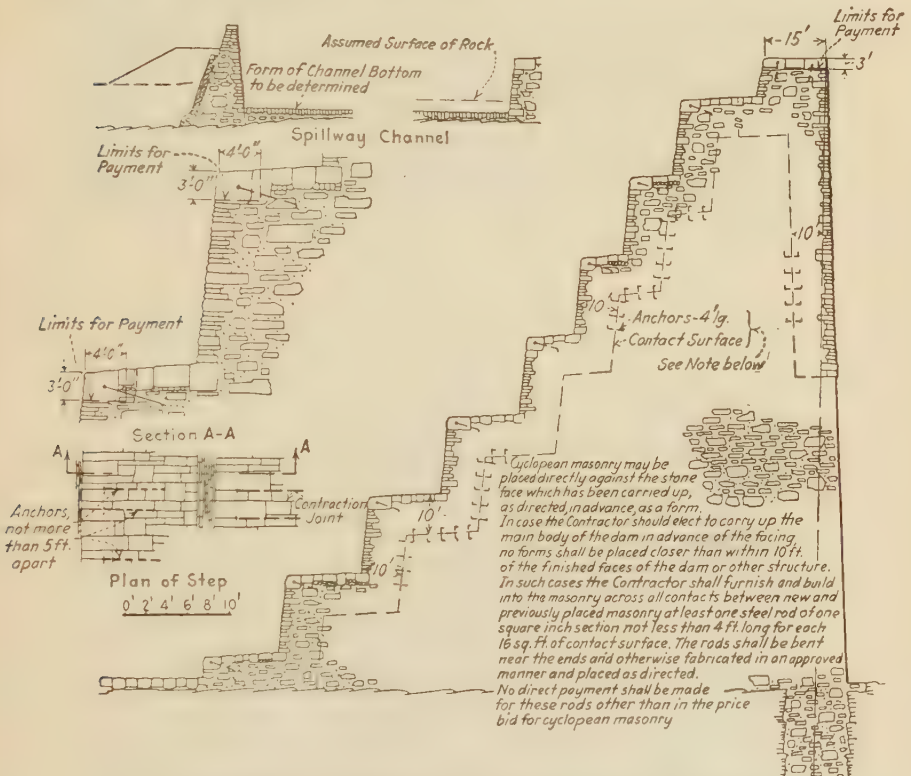 Limits for
Payment
15'
3'
Assumed Surface of Rock
Form of Channel Bottom
to be determined
Spillway Channel
Limits for
Payment
4'-0"
3'-0"
10'
10'
Anchors-4'lg.
Contact Surface
See Note below
Limits for Payment
4'-0"
3'-0"
Section A-A
A
A
Anchors,
not more
than 5ft.
apart
Contraction
Joint
Plan of Step
0' 2' 4' 6' 8' 10'
10'
10'
Cyclopean masonry may be
placed directly against the stone
face which has been carried up,
as directed, in advance, as a form.
In case the Contractor should elect to carry up the
main body of the dam in advance of the facing,
no forms shall be placed closer than within 10 ft.
of the finished faces of the dam or other structure.
In such cases the Contractor shall furnish and build
into the masonry across all contacts between new and
previously placed masonry at least one steel rod of one
square inch section not less than 4 ft. long for each
16 sq. ft. of contact surface. The rods shall be bent
near the ends and otherwise fabricated in an approved
manner and placed as directed.
No direct payment shall be made
for these rods other than in the price
bid for cyclopean masonry